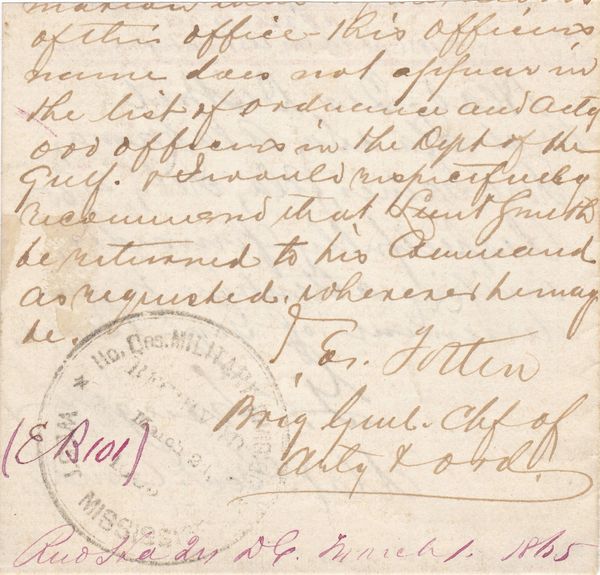 of this office - this officers
name does not appear in
the list of ordnance and acty
ord officers in the Dept of the
Gulf. & I would respectfully
recommend that Lieut Smith
be returned to his Command
as requested. wherever he may
be.
Jas. Totten
Brig Genl. Chf of
Arty & Ord.
Hd. Qrs. MILITARY
WEST
MISSISSI
RECEIVED
March
(E B 101)
March 1. 1865